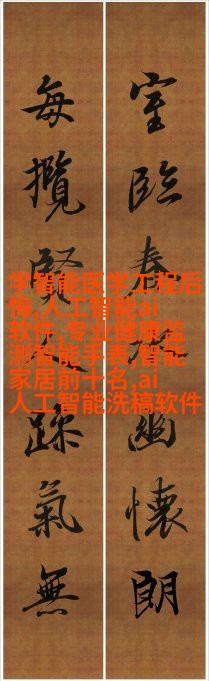 室臨春幽懷朗
每攬賢氣無
学智能医学工程后
悔,人工智能ai
软件,专业健康监
测智能手表,智能
家居前十名,ai
人工智能洗稿软件